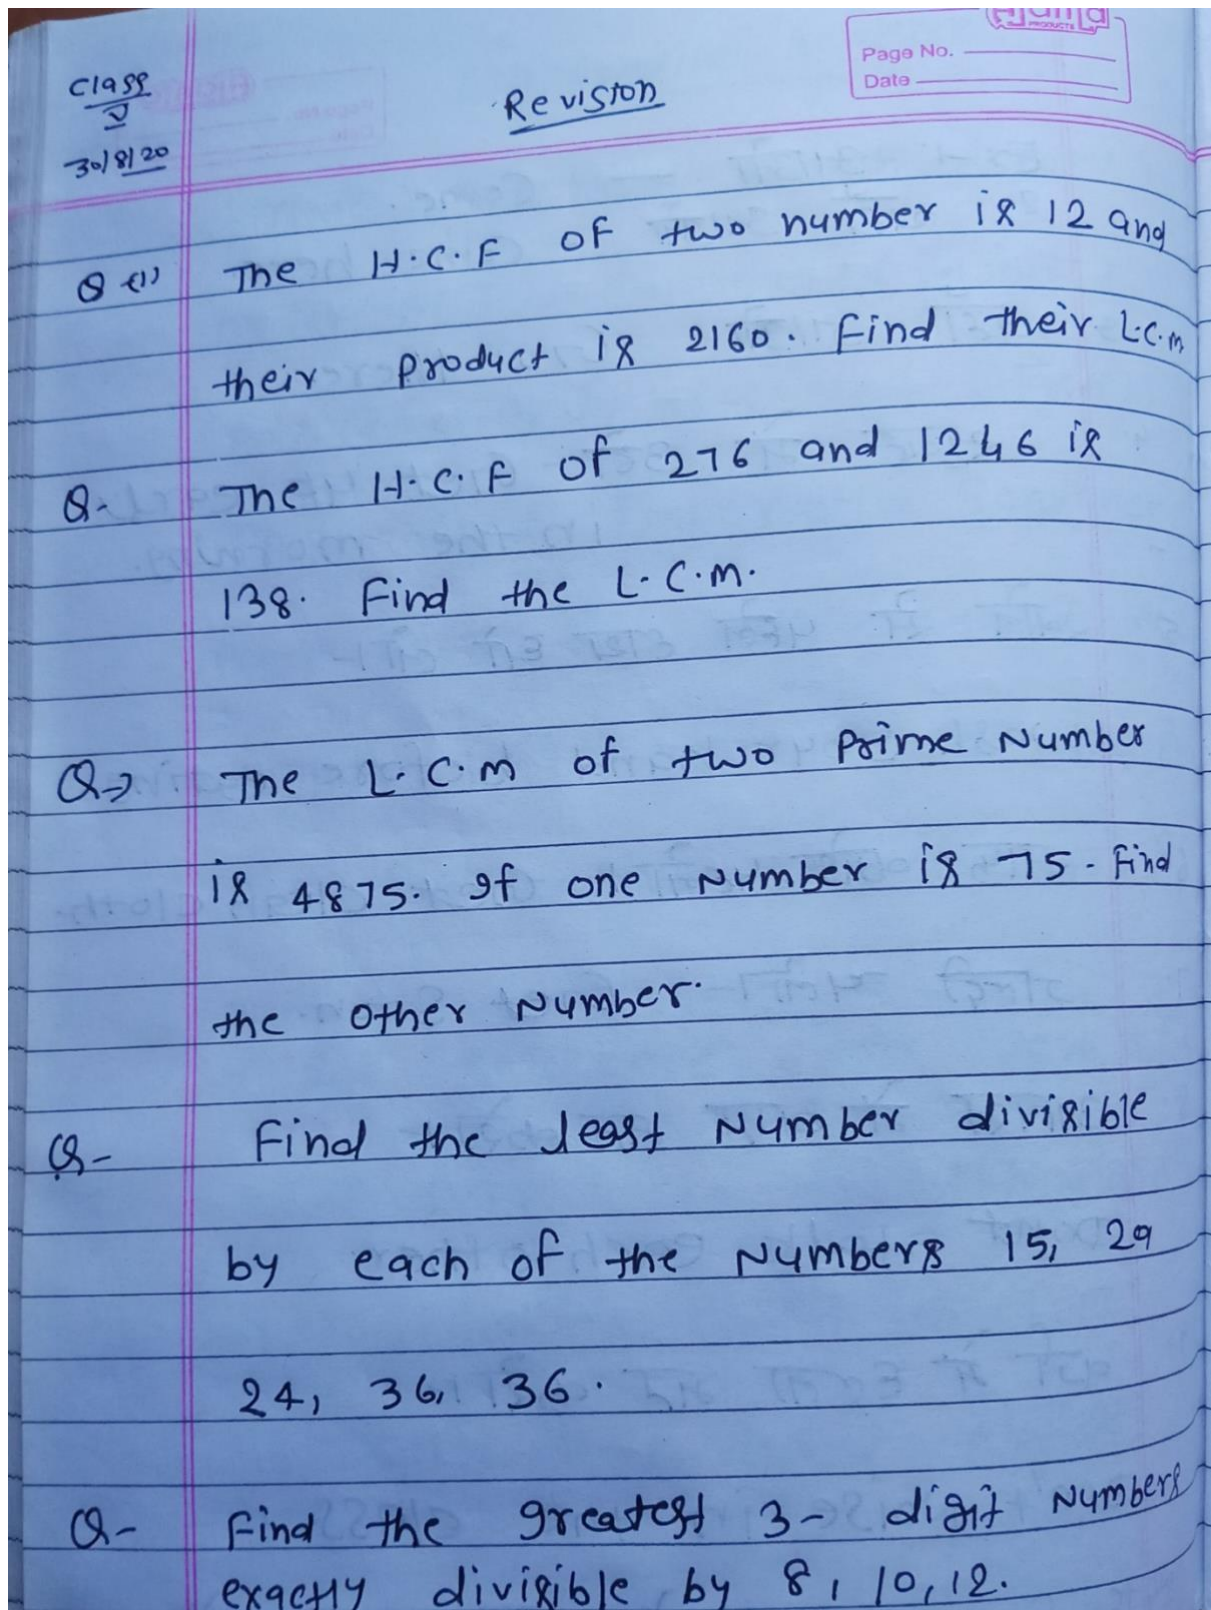 Class
V
30/8/20
Revision
PRODUCTS
Page No.
Date
Q (1) The H.C.F of two number is 12 and
their product is 2160. Find their L.C.M
Q- The H.C.F of 276 and 1246 is
138. Find the L.C.M.
Q→ The L.C.M of two Prime Number
is 4875. If one Number is 75 - Find
the other Number.
Q- Find the least Number divisible
by each of the Numbers 15, 29
24, 36, 36.
Q- Find the greatest 3- digit Numbers
exactly divisible by 8, 10, 12.